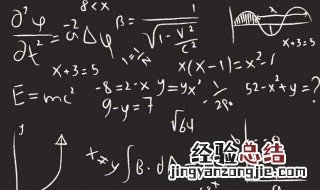 8 < x
∂²φ/∂t² = a²Δφ
β = 1/√(1 - v²/c²)
x + 3 = 5
x + 3 = 5
x(x-1) = x² - 1
E = mc²
-8 = 2 - x
y = yx²
52 - x² + y = ?
9 - y = 7
√64
y
x ≠ y
∫B·d
经验总结
www.jingyanzongjie.com